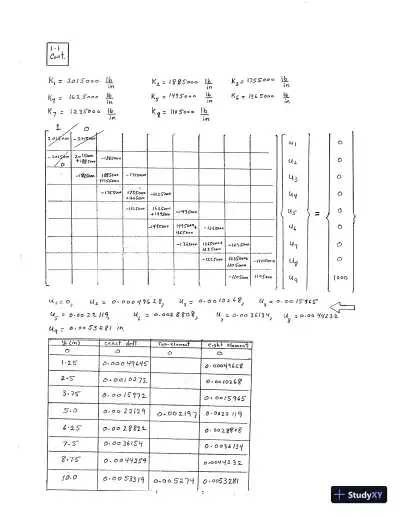 1-1
Cont.
K₁ = 2015000 lb/in K₂ = 1885000 lb/in K₃ = 1755000 lb/in
K₄ = 1625000 lb/in K₅ = 1495000 lb/in K₆ = 1365000 lb/in
K₇ = 1235000 lb/in K₈ = 1105000 lb/in
1 0
2015000 -2015000 u₁ 0
-2015000 0 2015000 +1885000 -1885000 u₂ 0
-1885000 1885000 +1755000 -1755000 u₃ 0
-1755000 1755000 +1625000 -1625000 u₄ 0
-1625000 1625000 +1495000 -1495000 u₅ = 0
-1495000 1495000+ 1365000 -1365000 u₆ 0
-1365000 1365000+ 1235000 -1235000 u₇ 0
-1235000 1235000+ 1105000 -1105000 u₈ 0
-1105000 1105000 u₉ 1000
u₁=0, u₂ = 0.00049628, u₃ = 0.0010268, u₄ = 0.0015965
u₅ = 0.0022119, u₆ = 0.0028808, u₇ = 0.0036134, u₈ = 0.0044232
u₉ = 0.0053281 in
y (in) exact defl. two-element eight element
0 0 0 0
1.25 0.00049645 0.00049628
2.5 0.0010272 0.0010268
3.75 0.0015972 0.0015965
5.0 0.0022129 0.002197 0.0022119
6.25 0.0028822 0.0028808
7.5 0.0036154 0.0036134
8.75 0.0044259 0.0044232
10.0 0.0053319 0.005274 0.0053281
StudyXY